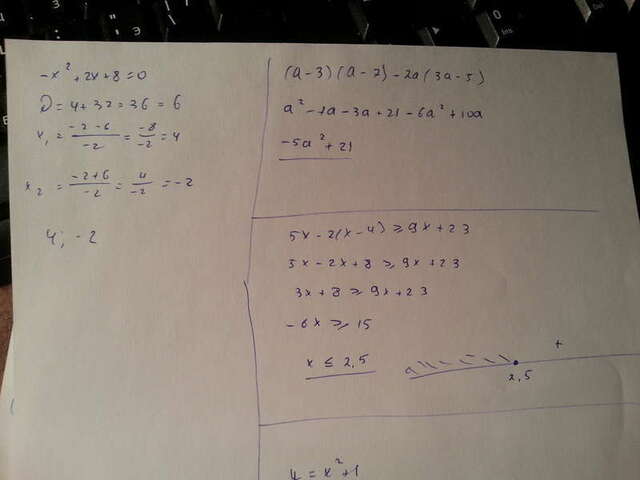 -x² + 2x + 8 = 0
D = 4 + 32 = 36 = 6
x₁ = (-2 - 6)/(-2) = -8/-2 = 4
x₂ = (-2 + 6)/(-2) = 4/-2 = -2
4; -2
(a - 3)(a - 7) - 2a(3a - 5)
a² - 7a - 3a + 21 - 6a² + 10a
-5a² + 21
5x - 2(x - 4) ≥ 9x + 23
5x - 2x + 8 ≥ 9x + 23
3x + 8 ≥ 9x + 23
-6x ≥ 15
x ≤ 2,5
+
2,5
y = x² + 1